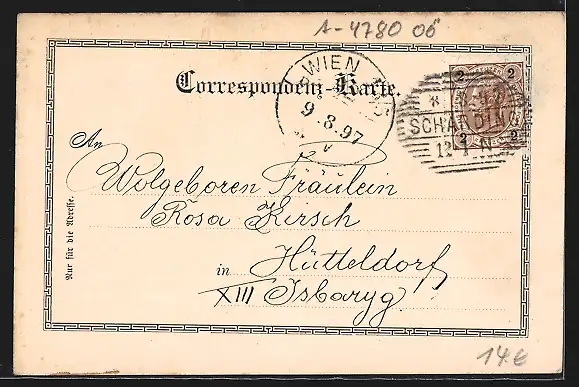 1-4780 06
Correspondenz-Karte.
WIEN
9.8.97
2 2
SCHÄRDING
2 2
12-1.N
An
Wolgeboren Fräulein
Rosa Kirsch
in Hütteldorf
XIII Isbaryg.
Nur für die Adresse.
14€